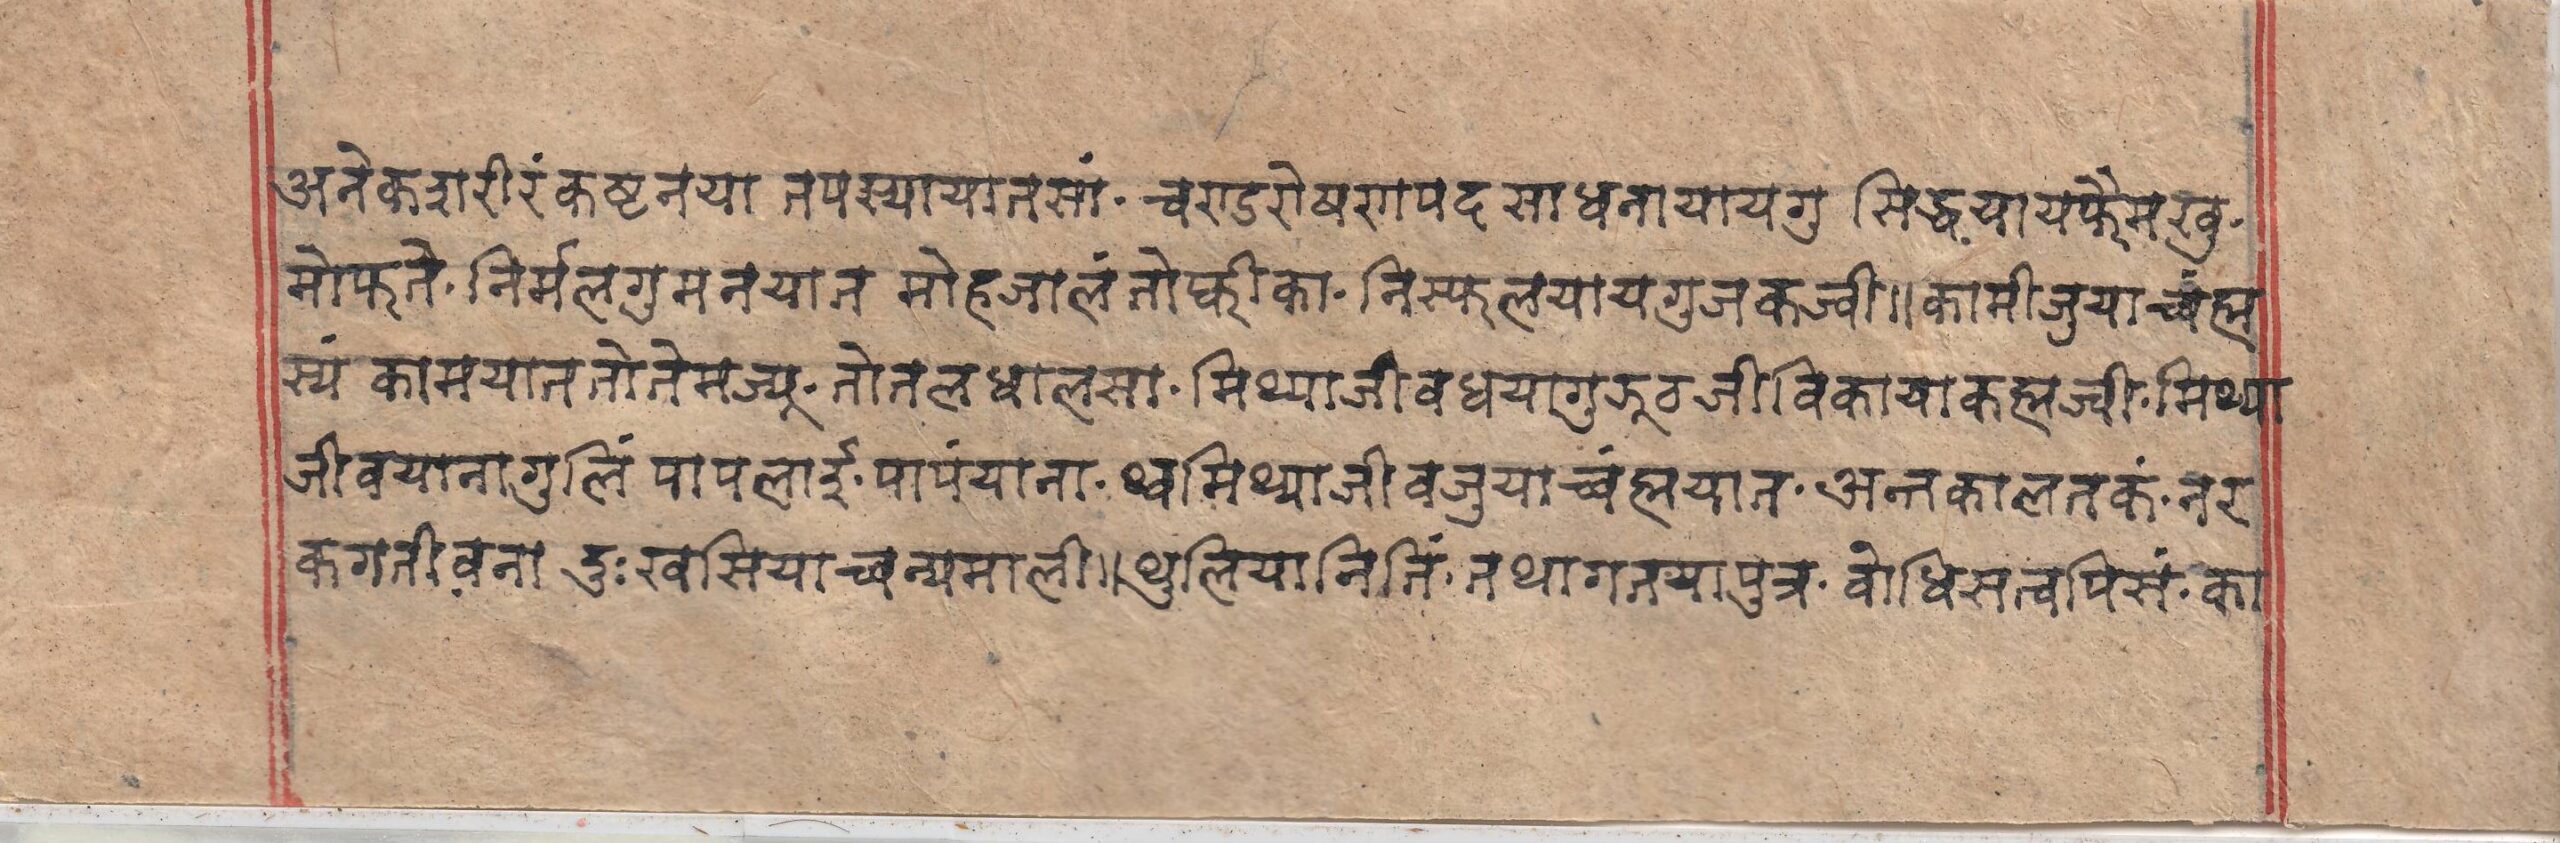 अनेकशरीरं कष्टनया तपस्यायातसां. चण्डरोषणपद साधनायायगु सिद्धयायफैमखु.
मोफतै. निर्मलगुमनयात मोहजालं तोप्वीका. निस्फलयायगुजकज्वी॥ कामीजुयाच्वंह्म
स्यं कामयात तोतेमज्यू. तोतलधालसा. मिथ्याजीवधयागु झूठजीविकायाकह्मज्वी. मिथ्या
जीवयानागुलिं पापलाई. पापंयाना. थ्वमिथ्याजीवजुयाच्वंह्मयात. अन्तकालतकं. नर
कगतीवना दुःखसियाच्वन्यमाली॥ थुलियानिंतिं. तथागतयापुत्र. बोधिसत्वपिसं. का